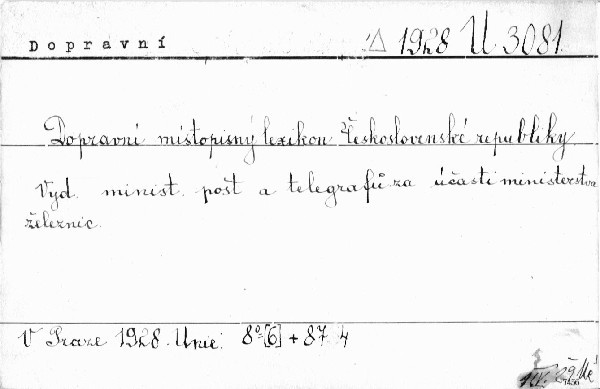 Dopravní △ 1928 U 3081.
Dopravní místopisný lexikon Československé republiky.
Vyd. minist. pošt a telegrafů za účasti ministerstva
železnic.
V Praze 1928. Unie. 8° [6] + 87